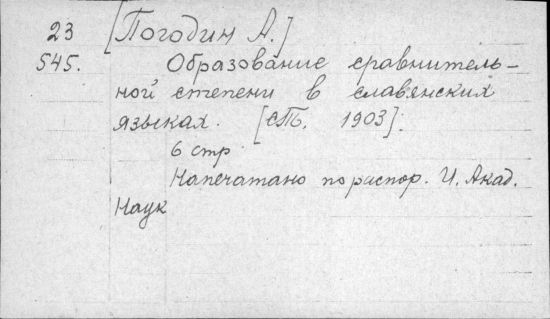 23 [Погодин А.]
545. Образование сравнитель-
ной степени в славянских
языках. [СПб. 1903].
6 стр
Напечатано по распор. И. Акад.
Наук